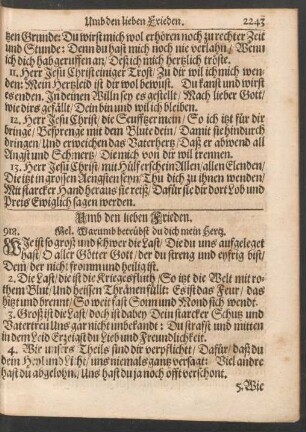 Umb den lieben Frieden. 2243
tzen Grunde: Du wirst mich wol erhören noch zu rechter Zeit
und Stunde: Denn du hast mich noch nie verlahn/ Wenn
ich dich hab geruffen an/ Deß ich mich hertzlich tröste.
11. Herr Jesu Christ einiger Trost/ Zu dir wil ich mich wen-
den: Mein Hertzleid ist dir wol bewust. Du kanst und wirst
es enden. In deinen Willn sey es gestellt/ Mach lieber Gott/
wie dirs gefällt/ Dein bin und wil ich bleiben.
12. Herr Jesu Christ/ die Seufftzer mein/ So ich itzt für dir
bringe/ Besprenge mit dem Blute dein/ Damit sie hindurch
dringen/ Und erweichen das Vaterhertz/ Daß er abwend all
Angst und Schmertz/ Die mich von dir wil trennen.
13. Herr Jesu Christ/ mit Hülf erschein Allen/ allen Elenden/
Die itzt in grossen Jengsten seyn/ Thu dich zu ihnen wenden/
Mit starcker Hand heraus sie reiß/ Dafür sie dir dort Lob und
Preis Ewiglich sagen werden.
Umb den lieben Frieden.
918. Mel. Warumb betrübst du dich mein Hertz.
WJe ist so groß und schwer die Last/ Die du uns aufgeleget
hast/ O aller Götter Gott/ der du streng und eyfrig bist/
Dem/ der nicht fromm und heilig ist.
2. Die Last/ die ist die Kriegesfluth/ So itzt die Welt mit ro-
them Blut/ Und heissen Thränen füllt: Es ist das Feur/ das
hitzt und brennt/ So weit fast Sonn und Mond sich wendt.
3. Groß ist die Last/ doch ist dabey Dein starcker Schutz und
Vatertreu Uns gar nicht unbekandt: Du straffst und mitten
in dem Leid Erzeigst du Lieb und Freundlichkeit.
4. Wir unsers Theils sind dir verpflichtet/ Dafür/ daß du
dein Heyl und Licht/ uns niemals gantz versagt: Viel andre
hast du abgelohn/ Uns hast du ja noch offt verschont.
5. Wie